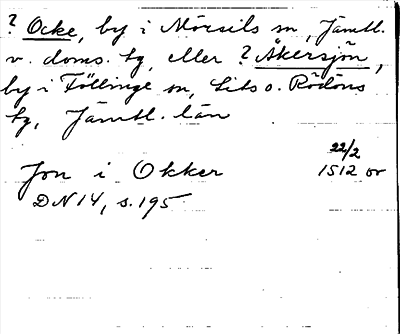 ? Ocke, by i Mörsils sn, Jämtl.
v. doms. tg, eller ? Åkersjön,
by i Föllinge sn, Lits o. Rödöns
tg, Jämtl. län
Jon i Okker 22/2 1512 or
DN 14, s. 195